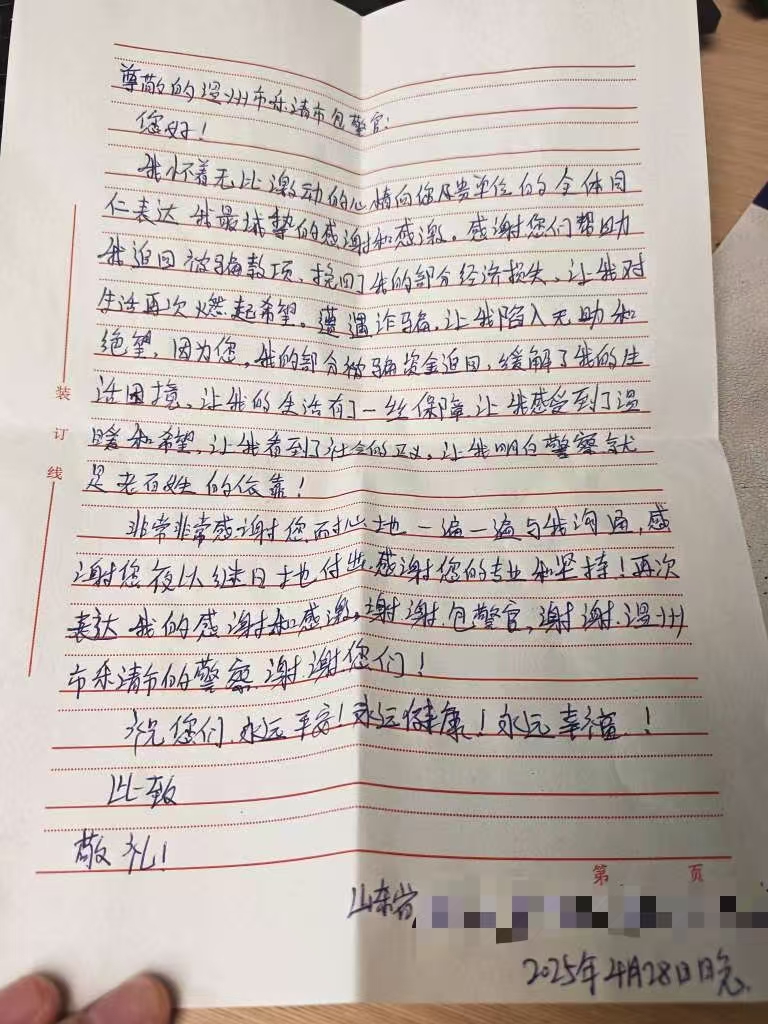 尊敬的温州市乐清市包警官:
您好!
我怀着无比激动的心情向您及贵单位的全体同
仁表达我最球挚的感谢和感激。感谢您们帮助
我追回被骗款项、挽回了我的部分经济损失、让我对
生活再次燃起希望。遭遇诈骗,让我陷入无助和
绝望,因为您,我的部分被骗资金追回,缓解了我的生
活困境、让我的生活有了一丝保障、让我感受到了温
暖和希望、让我看到了社会的正义、让我明白警察就
是老百姓的依靠!
非常非常感谢您耐心地一遍一遍与我沟通,感
谢您夜以继日地付出、感谢您的专业和坚持!再次
表达我的感谢和感激。谢谢包警官,谢谢温州
市乐清市的警察、谢谢您们!
祝您们永远平安!永远健康!永远幸福!
此致
敬礼!
山东省
2025年4月28日晚
装
订
线
第 页